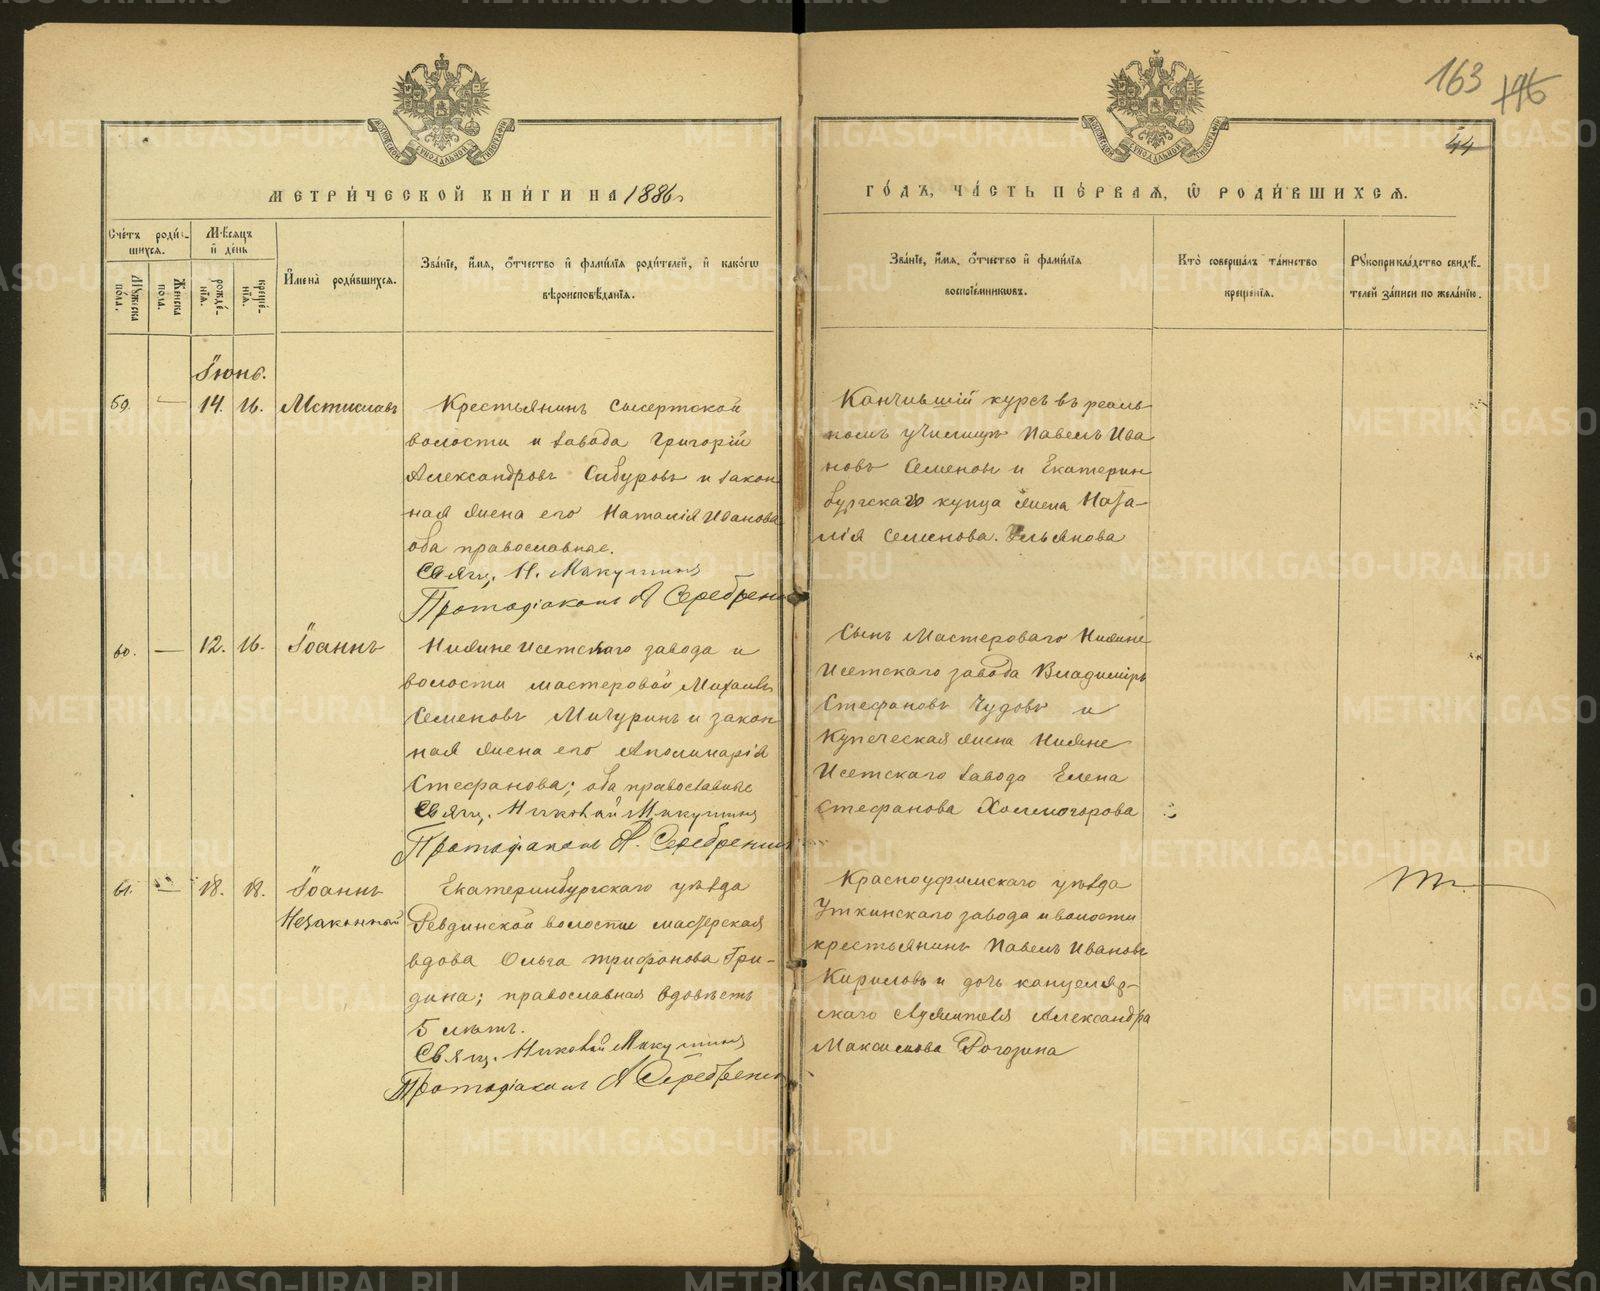 163 116
44
МЕТРИ́ЧЕСКОЙ КНИ́ГИ НА 1886
ГО́ДЪ, ЧА́СТЬ ПЕ́РВАЯ, Ѿ РОДИ́ВШИХСЯ.
Сче́тъ роди́вшихся.
Мѣ́сяцъ и́ де́нь
Му́жеска по́ла.
Же́нска по́ла.
рожде́нїя.
креще́нїя.
И҆мена̀ роди́вшихся.
Зва́нїе, и҆́мя, ѻ҆́тчество и҆ фами́лїя роди́телей, и҆ како́гѡ
вѣроисповѣ́данїя.
Зва́нїе, и҆́мя, ѻ҆́тчество и҆ фами́лїя
воспрїе́мникѡвъ.
Кто̀ соверша́лъ та́инство
креще́нїя.
Рꙋкоприкла́дство свидѣ́телей за́писи по жела́нїю.
Іюнь.
59. — 14. 16. Мстиславъ
Крестьянинъ Сысертской
волости и завода Григорій
Александровъ Сибуровъ и закон
ная жена его Наталія Иванова
оба православные.
Свящ. Н. Микушинъ
Протодіаконъ А Серебрен
Кончившій курсъ въ реаль
номъ училищѣ Павелъ Ива
новъ Семеновъ и Екатерин
бургскаго купца жена Ната-
лія Семенова. Ульянова
60. — 12. 16. Іоаннъ
Нижне Исетскаго завода и
волости мастеровой Михаилъ
Семеновъ Мичуринъ и закон
ная жена его Аполинарія
Стефанова; оба православные
Свящ. Николай Микушинъ
Протодіаконъ А. Серебрении
Сынъ Мастероваго Нижне
Исетскаго завода Владиміръ
Стефановъ Чудовъ и
Купеческая жена Нижне
Исетскаго завода Елена
Стефанова Холмогорова
61. — 18. 18. Іоаннъ
Незаконный
Екатеринбургскаго уѣзда
Ревдинской волости мастерская
вдова Ольга Трифонова Гри-
дина; православная вдовѣетъ
5 лѣтъ.
Свящ. Николай Микушинъ
Протодіаконъ А Серебрени
Красноуфимскаго уѣзда
Уткинскаго завода и волости
крестьянинъ Павелъ Ивановъ
Кириловъ и дочь канцеляр-
скаго служителя Александра
Максимова Рогозина
METRIKI.GASO-URAL.RU